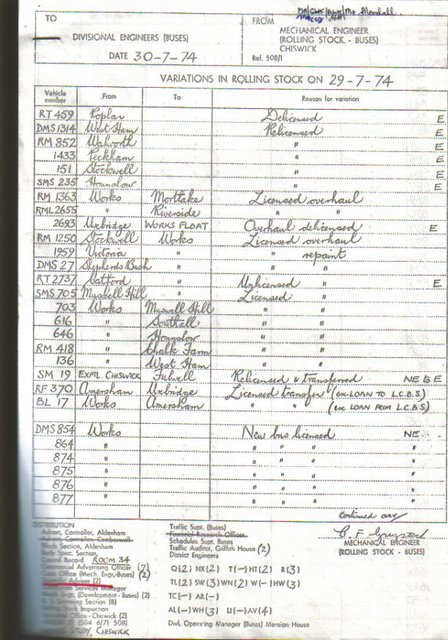 TO
FROM
DIVISIONAL ENGINEERS (BUSES)
MECHANICAL ENGINEER
(ROLLING STOCK - BUSES)
CHISWICK
DATE 30-7-74
Ref. 508/1
VARIATIONS IN ROLLING STOCK ON 29-7-74
Vehicle number From To Reason for variation
RT 459 Poplar Delicensed E
DMS 1314 West Ham Relicensed E
RM 852 Walworth " E
1433 Peckham " E
151 Stockwell " E
SMS 235 Hounslow " E
RM 1363 Works Mortlake Licensed overhaul
RML 2655 " Riverside " "
2693 Uxbridge WORKS FLOAT Overhaul delicensed E
RM 1250 Stockwell Works Licensed overhaul
1959 Victoria " " repaint
DMS 27 Shepherds Bush " " "
RT 2737 Catford " Unlicensed E
SMS 705 Muswell Hill " Licensed
703 Works Muswell Hill "
616 " Southall "
646 " Hounslow "
RM 418 " Chalk Farm "
136 " West Ham "
SM 19 EXPTL CHISWICK Fulwell Relicensed & transferred NE & E
RF 370 Amersham Uxbridge Licensed transfer (ex LOAN TO L.C.B.S)
BL 17 Works Amersham " " (ex LOAN FROM L.C.B.S)
DMS 854 Works New bus licensed NE
864 " " " " "
874 " " " " "
875 " " " " "
876 " " " " "
877 " " " " "
Continued over
MECHANICAL ENGINEER
(ROLLING STOCK - BUSES)
DISTRIBUTION
Advert. Controller, Aldenham
Advert. Controller, Camberwell
Section, Aldenham
Body Spec. Section,
Record ROOM 34
Commercial Advertising Officer (2)
Office (Mech. Engr.-Buses) (2)
(2)
Services Manager
Engr. (Development - Buses) (2)
Section (8)
Inspection
Office - Chiswick
(S04 6/71 508)
STUDY, CHISWICK
Traffic Supt. (Buses)
Financial Research Officer
Schedules Supt. Buses
Traffic Auditor, Griffith House (2)
District Engineers
Q(2) NX(2) T(-) HT(2) R(3)
TL(2) SW(3) WN(2) W(-) HW(3)
TC(-) AR(-)
AL(-) WH(3) U(-) AV(4)
Divl. Operating Manager (Buses) Mansion House